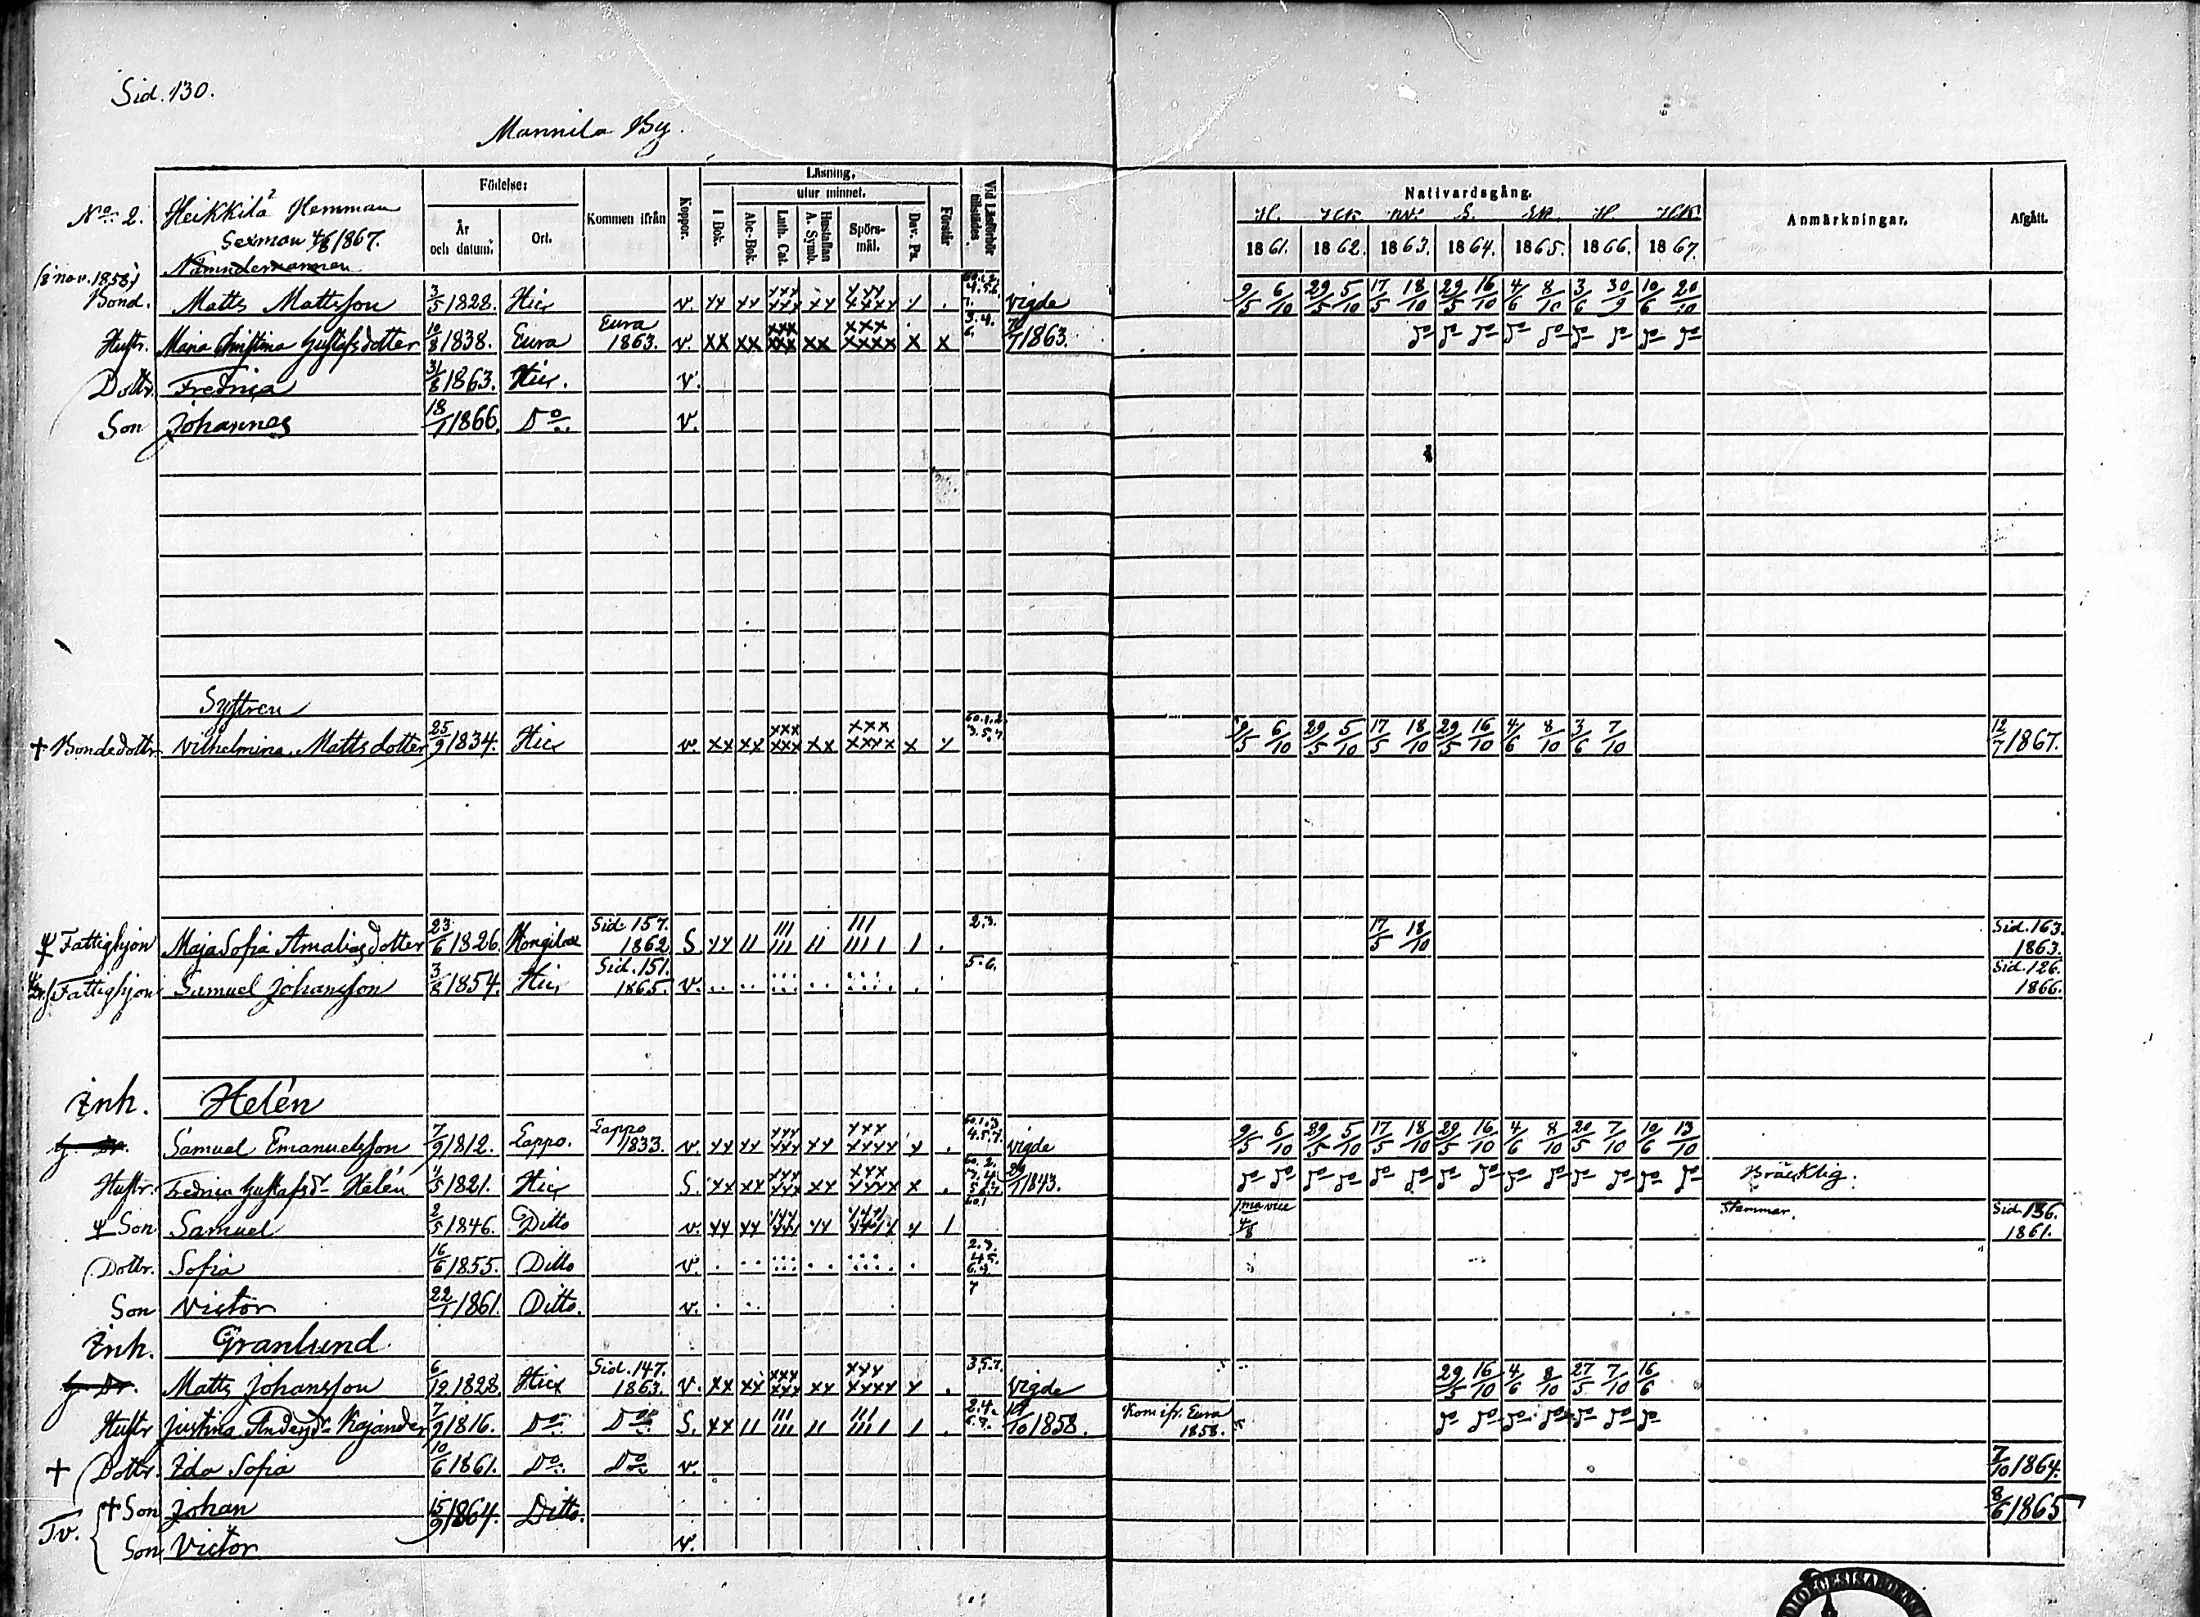 Sid. 130.
Mannila By.
No 2. Heikkilä Hemman
Sexman 4/8 1867.
Nämndemannen
Födelse:
År och datum.
Ort.
Kommen ifrån
Koppor.
Läsning,
utur minnet.
I Bok.
Abc-Bok.
Luth. Cat.
Hustaflan A. Symb.
Spörs-mål.
Dav. Ps.
Förstår
Vid Läsförhör tillstädes.
Nattvardsgång.
1861. 1862. 1863. 1864. 1865. 1866. 1867.
Anmärkningar.
Afgått.
(8 nov. 1858)
Bond. Matts Mattsson 3/5 1828. Hic v. xx xx xxx xxx xx xxx xxxx vigde 9/5 6/10 29/5 5/10 17/5 18/10 29/5 16/10 4/6 8/10 3/6 30/9 10/6 20/10
Hustr. Maria Christina Gustafsdotter 10/8 1838. Eura Eura 1863. v. xx xx xxx xxx xx xxx xxxx x x 3.4. 6. 1863. do do do do do do do do do
Dottr. Fredrica 31/8 1863. Hic. v.
Son Johannes 18/1 1866. Do v.
Systren
+ Bondedottr. Vilhelmina Mattsdotter 25/9 1834. Hic v. xx xx xxx xxx xx xxx xxxx x 9/5 6/10 29/5 5/10 17/5 18/10 29/5 16/10 4/6 8/10 3/6 7/10 12/7 1867.
Fattighjon Maja Sofia Amaliasdotter 23/6 1826. Sid. 157. 1862 S 2.3. 17/5 18/10 Sid. 163. 1863.
Fattighjon Samuel Johansson 3/8 1854. Hic Sid. 151. 1865. v. 5.6. Sid. 126. 1866.
Inh. Helén
Samuel Emanuelsson 7/9 1812. Lappo. Lappo 1833. v. xx xx xxx xxx xx xxx xxxx vigde 9/5 6/10 29/5 5/10 17/5 18/10 29/5 16/10 4/6 8/10 20/5 7/10 10/6 13/10
Hustr. Fredrica Gustafsdr Helén 1821. Hic S. xx xx xxx xxx xx xxx xxxx x 1843. do do do do do do do do do do do do do do Bräcklig.
Son Samuel 2/5 1846. Ditto v. 1ma vice 4/8 Stammar. Sid. 136. 1861.
Dottr. Sofia 16/6 1855. Ditto v. 2.3. 4.5. 6.7.
Son Victor 22/1 1861. Ditto. v. 7
Inh. Granlund
Matts Johansson 6/12 1828 Hic Sid. 147. 1863. v. xx xx xxx xxx xx xxx xxxx 3.5.7. vigde 29/5 16/10 4/6 8/10 27/5 7/10 16/6
Hustr Justina Andersdr Kajander 7/9 1816. Do Do S. 1858. Kom ifr. Eura 1858. do do do do do do do
+ Dottr. Ida Sofia 10/6 1861. Do Do v. 7/10 1864.
Tv. + Son Johan 15/9 1864. Ditto. 8/6 1865
Son Victor v.